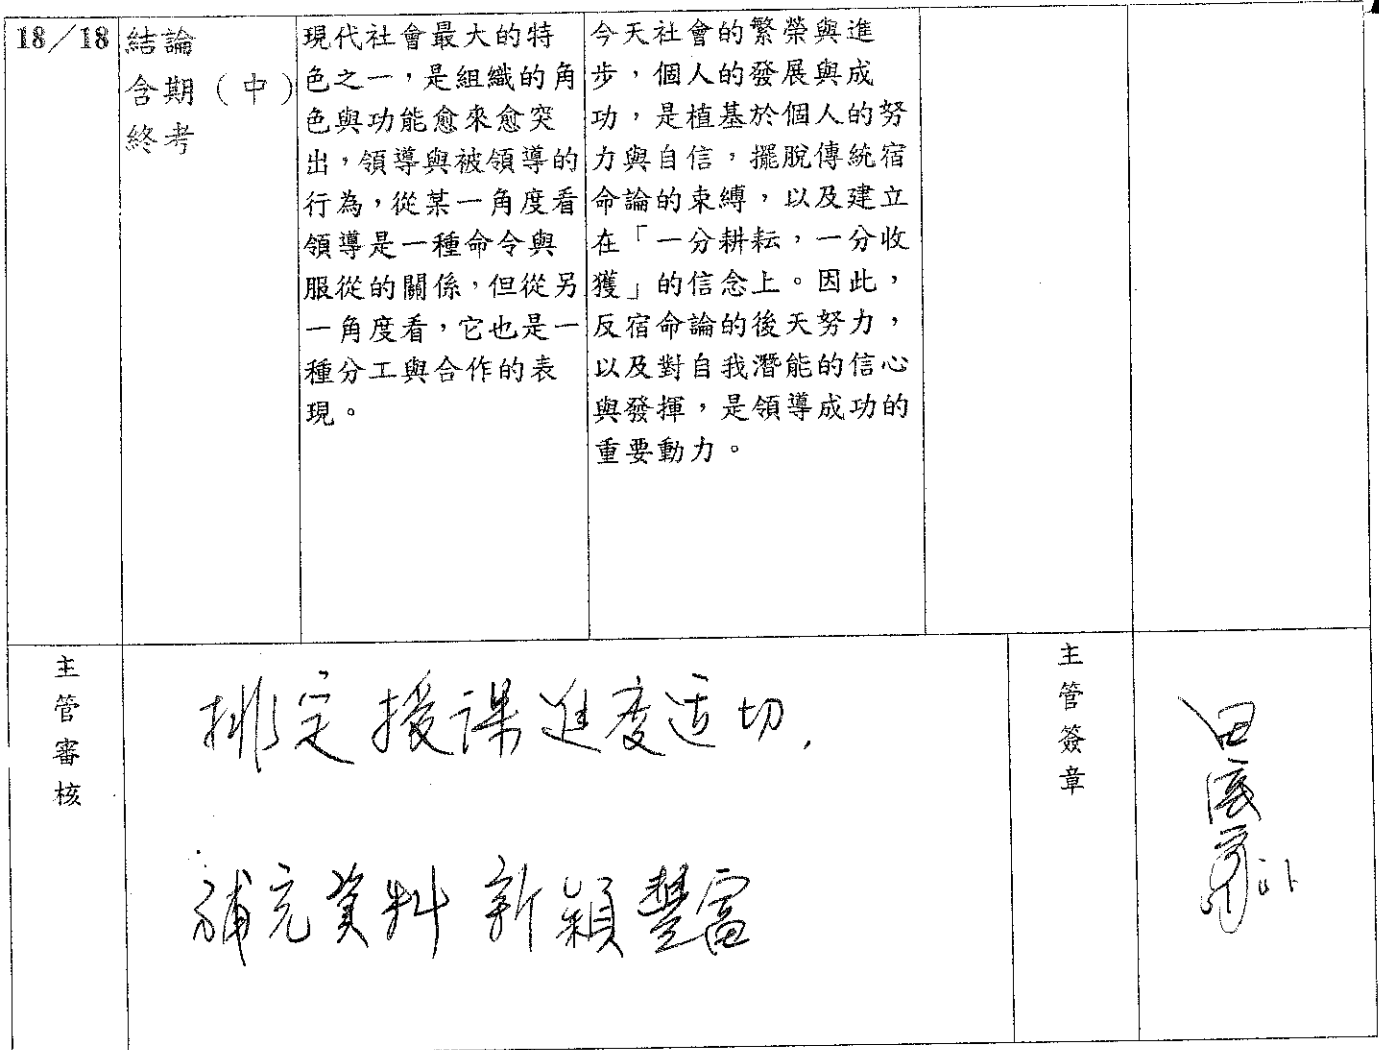 18／18
結論
含期（中）
終考
現代社會最大的特
色之一，是組織的角
色與功能愈來愈突
出，領導與被領導的
行為，從某一角度看
領導是一種命令與
服從的關係，但從另
一角度看，它也是一
種分工與合作的表
現。
今天社會的繁榮與進
步，個人的發展與成
功，是植基於個人的努
力與自信，擺脫傳統宿
命論的束縛，以及建立
在「一分耕耘，一分收
獲」的信念上。因此，
反宿命論的後天努力，
以及對自我潛能的信心
與發揮，是領導成功的
重要動力。
主管審核
排定授課進度適切.
補充資料新穎豐富
主管簽章